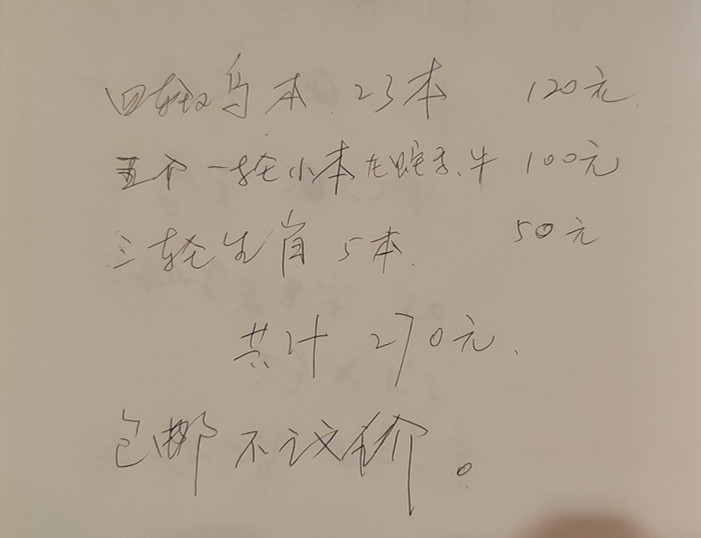 四轮鸟本 23本 120元
五个一轮小本龙蛇子、牛 100元
三轮生肖5本. 50元
共计270元.
包邮不议价。